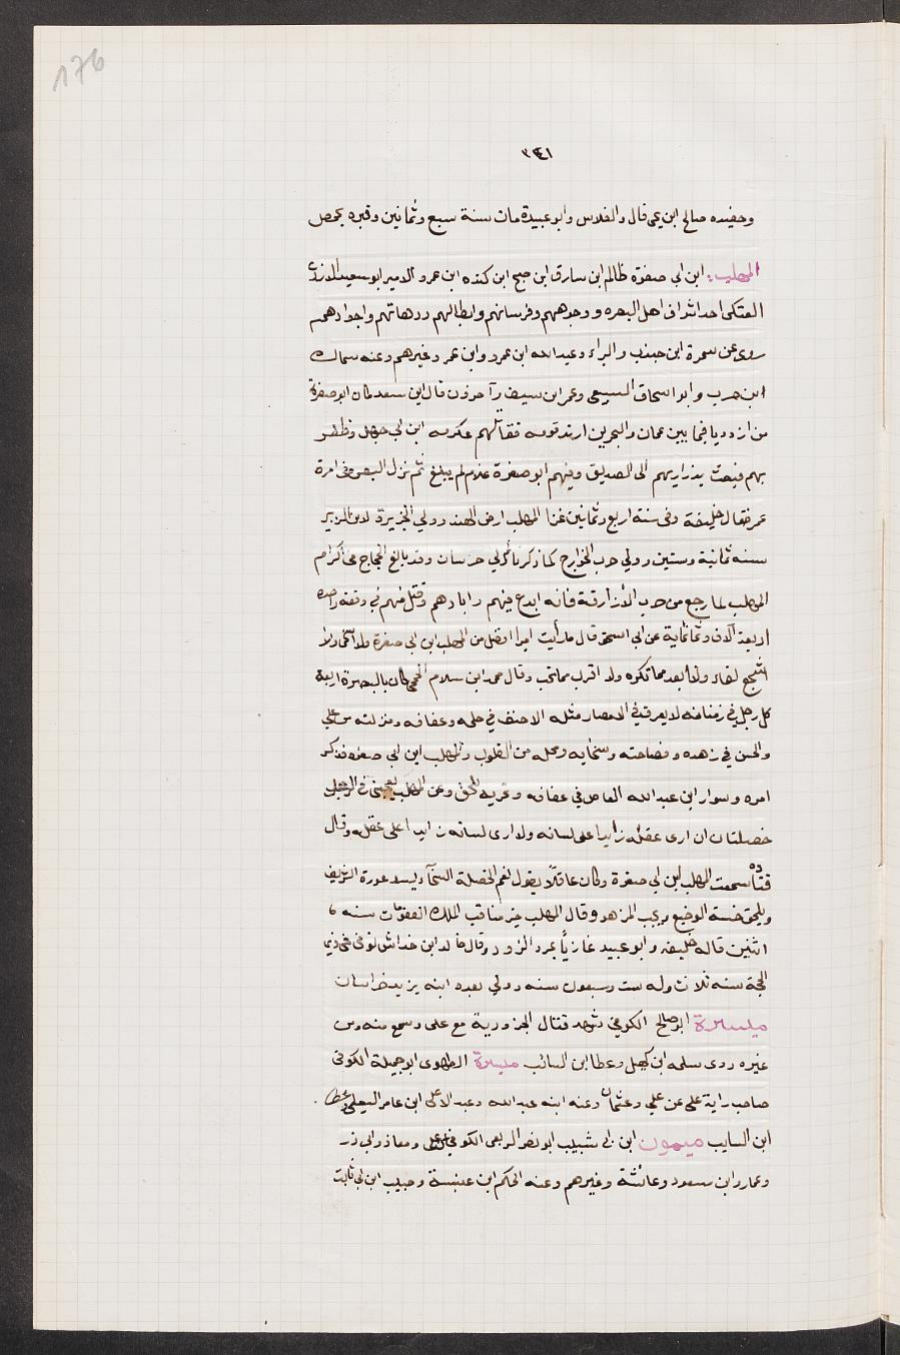 176
٣٤١
وحفيده صالح ابن يحى قال والفلاس وابو عبيدة مات سنة سبع وثمانين وقبره بحمص
المهلب: ابن ابي صفرة ظالم ابن سارق ابن صبح ابن كنده ابن عمرو الامير ابو سعيد الازدي
العتكى احد اشراف اهل البصره ووجوههم وفرسانهم وابطالهم ودهاتهم واجوادهم
روى عن سمرة ابن جندب والبراء وعبدالله ابن عمرو وابن عمر وغيرهم وعنه سماك
ابن حرب وابو اسحاق السبيعى وعمر ابن سيف وآخرون قال ابن سعد كان ابو صفرة
من ازد دبا فيما بين عمان والبحرين ارتد قومه فقاتلهم عكرمه ابن ابي جهل وظفر
بهم فبعث بذراريهم الى الصديق وفيهم ابو صفرة غلام لم يبلغ ثم نزل البصره فى امرة
عمر فقال خليفة وفى سنة اربع وثمانين غزا المهلب ارض الهند وولي الجزيرة لابن الزبير
سنه ثمانية وستين وولي حرب الخوارج كما ذكرنا ثم ولي خرسان وقد بالغ الحجاج فى اكرام
المهلب لما رجع من حرب الأزارقة فانه ابدع فيهم وابادهم وقتل منهم في وقعة واحده
اربعة آلاف وثمانماية عن ابي اسحق قال ما رأيت اميرا افضل من المهلب ابن ابي صفرة ولا اسخى ولا
اشجع لقاء ولا ابعد مما تكره ولا اقرب مما تحب وقال محمد ابن سلام الجمحي كان بالبصرة اربعة
كل رجل في زمنانه لا يعرف في الامصار مثله الاحنف في حلمه وعفافه ومنزلته من علي
والحسن في زهده وفصاحته وسخايه ومحله من القلوب والمهلب ابن ابي صفره فذكر
امره وسوار ابن عبدالله القاضي في عفافه وتحريه للحق وعن المهلب يعجبنى فى الرجل
خصلتان ان ارى عقله زايدا على لسانه ولا ارى لسانه زايدا على عقله وقال
قتاده سمعت المهلب ابن ابي صفرة وكان عاقلا يقول نعم الخصلة السخآ ليسد عورة الشريف
ويلحق خسة الوضيع ويحبب المزهد وقال المهلب خير مناقب الملك العفو مات سنه
اثنين قاله خليفه وابو عبيد غازياً بمرو الروذ وقال خالد ابن خداش توفى فى ذى
الحجة سنه ثلاث وله ست وسبعون سنه وولي بعده ابنه يزيد خراسان
ميسرة ابو صالح الكوفي شهد قتال الحرورية مع على وسمع منه ومن
غيره روى سلمه ابن كهيل وعطا ابن السائب ميسرة الطهوى ابو جميلة الكوفى
صاحب راية على عن علي وعثمان وعنه ابنه عبدالله وعبد الاعلى ابن عامر الثعلبى وعطا
ابن السايب ميمون ابن ابي شبيب ابو نصر الربعى الكوفي عن على ومعاذ وابي ذر
وعمار وابن مسعود وعائشة وغيرهم وعنه الحكم ابن عنبسة وحبيب ابن ابي ثابت